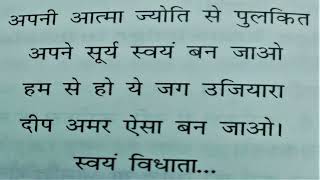 अपनी आत्मा ज्योति से पुलकित
अपने सूर्य स्वयं बन जाओ
हम से हो ये जग उजियारा
दीप अमर ऐसा बन जाओ।
स्वयं विधाता...